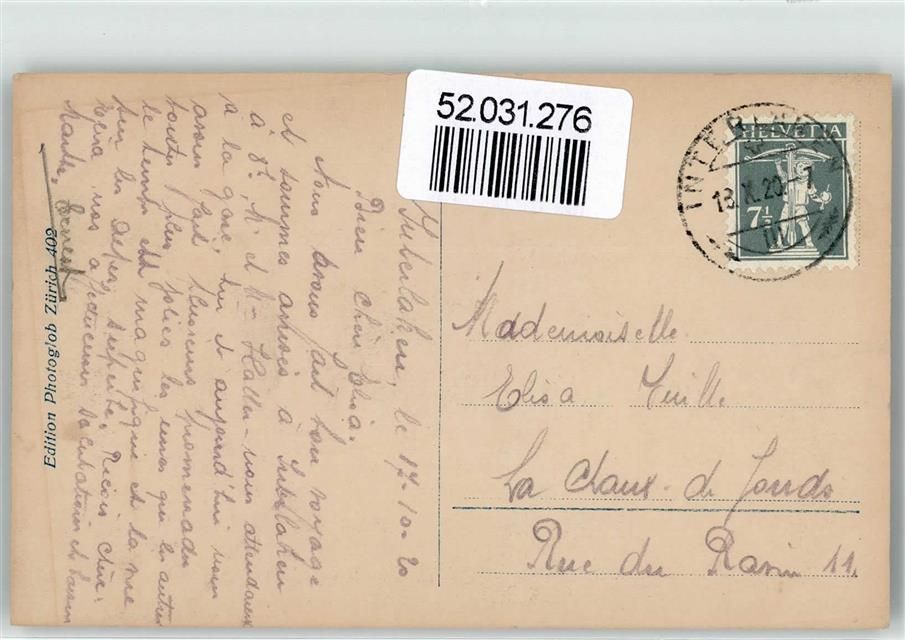 52.031.276
INTERLAKEN
18.X.20.-7
III
HELVETIA
7½
Interlaken, le 17-10-20
Bien chère Elisa.
Nous avons fait bon voyage
et sommes arrivés à Interlaken
à 8h, M et M Haller nous attendaient
à la gare, hier et aujourd'hui nous
avons fait plusieurs promenades
toutes plus jolies les unes que les autres
le temps est magnifique et la vue
sur les Alpes superbe. Reçois chère
Elisa nos affectueuses salutations et baisers
Mademoiselle
Elisa
La Chaux-de-Fonds
Rue du Ravin 11.
Edition Photoglob Zürich 402